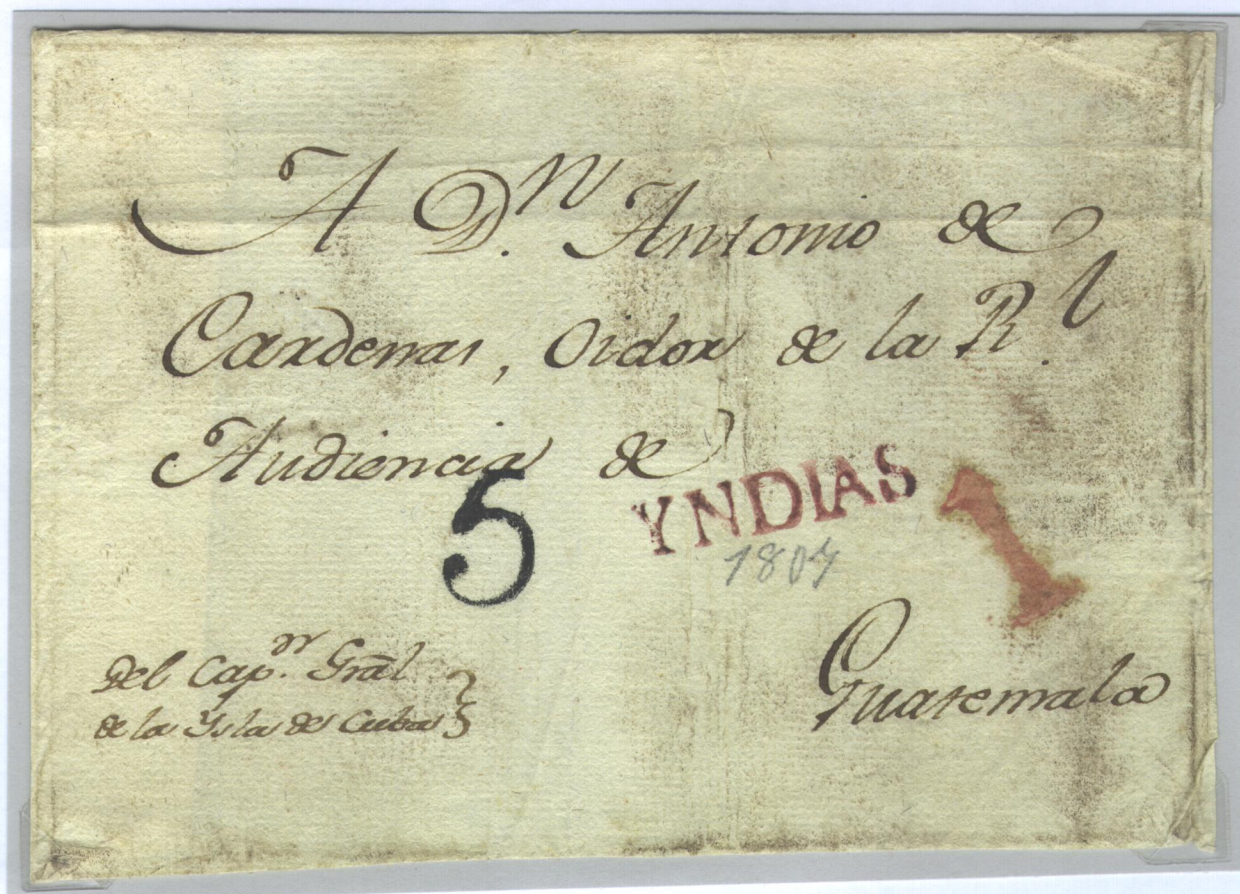 A D.n Antonio de
Cardenas, Oidor de la R.l
Audiencia de
5
YNDIAS
1
Guatemala
Del Cap.n Gral
de la Ysla de Cuba